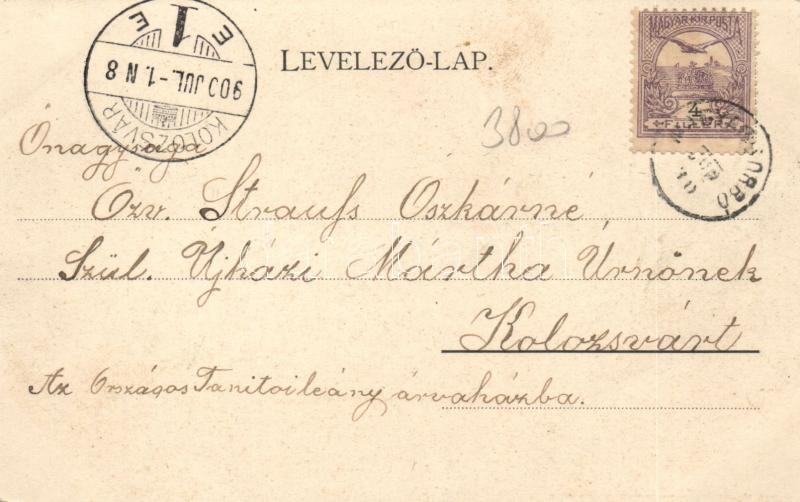 LEVELEZŐ-LAP.
MAGYAR KIR. POSTA
4
FILLÉR
KOLOZSVÁR
900 JUL.-1. N 8
1
E E
3800
Őnagysága
Özv. Strauss Oszkárné
Szül. Újházi Mártha Úrnőnek
Kolozsvárt
Az Országos Tanitoileány árvaházba.